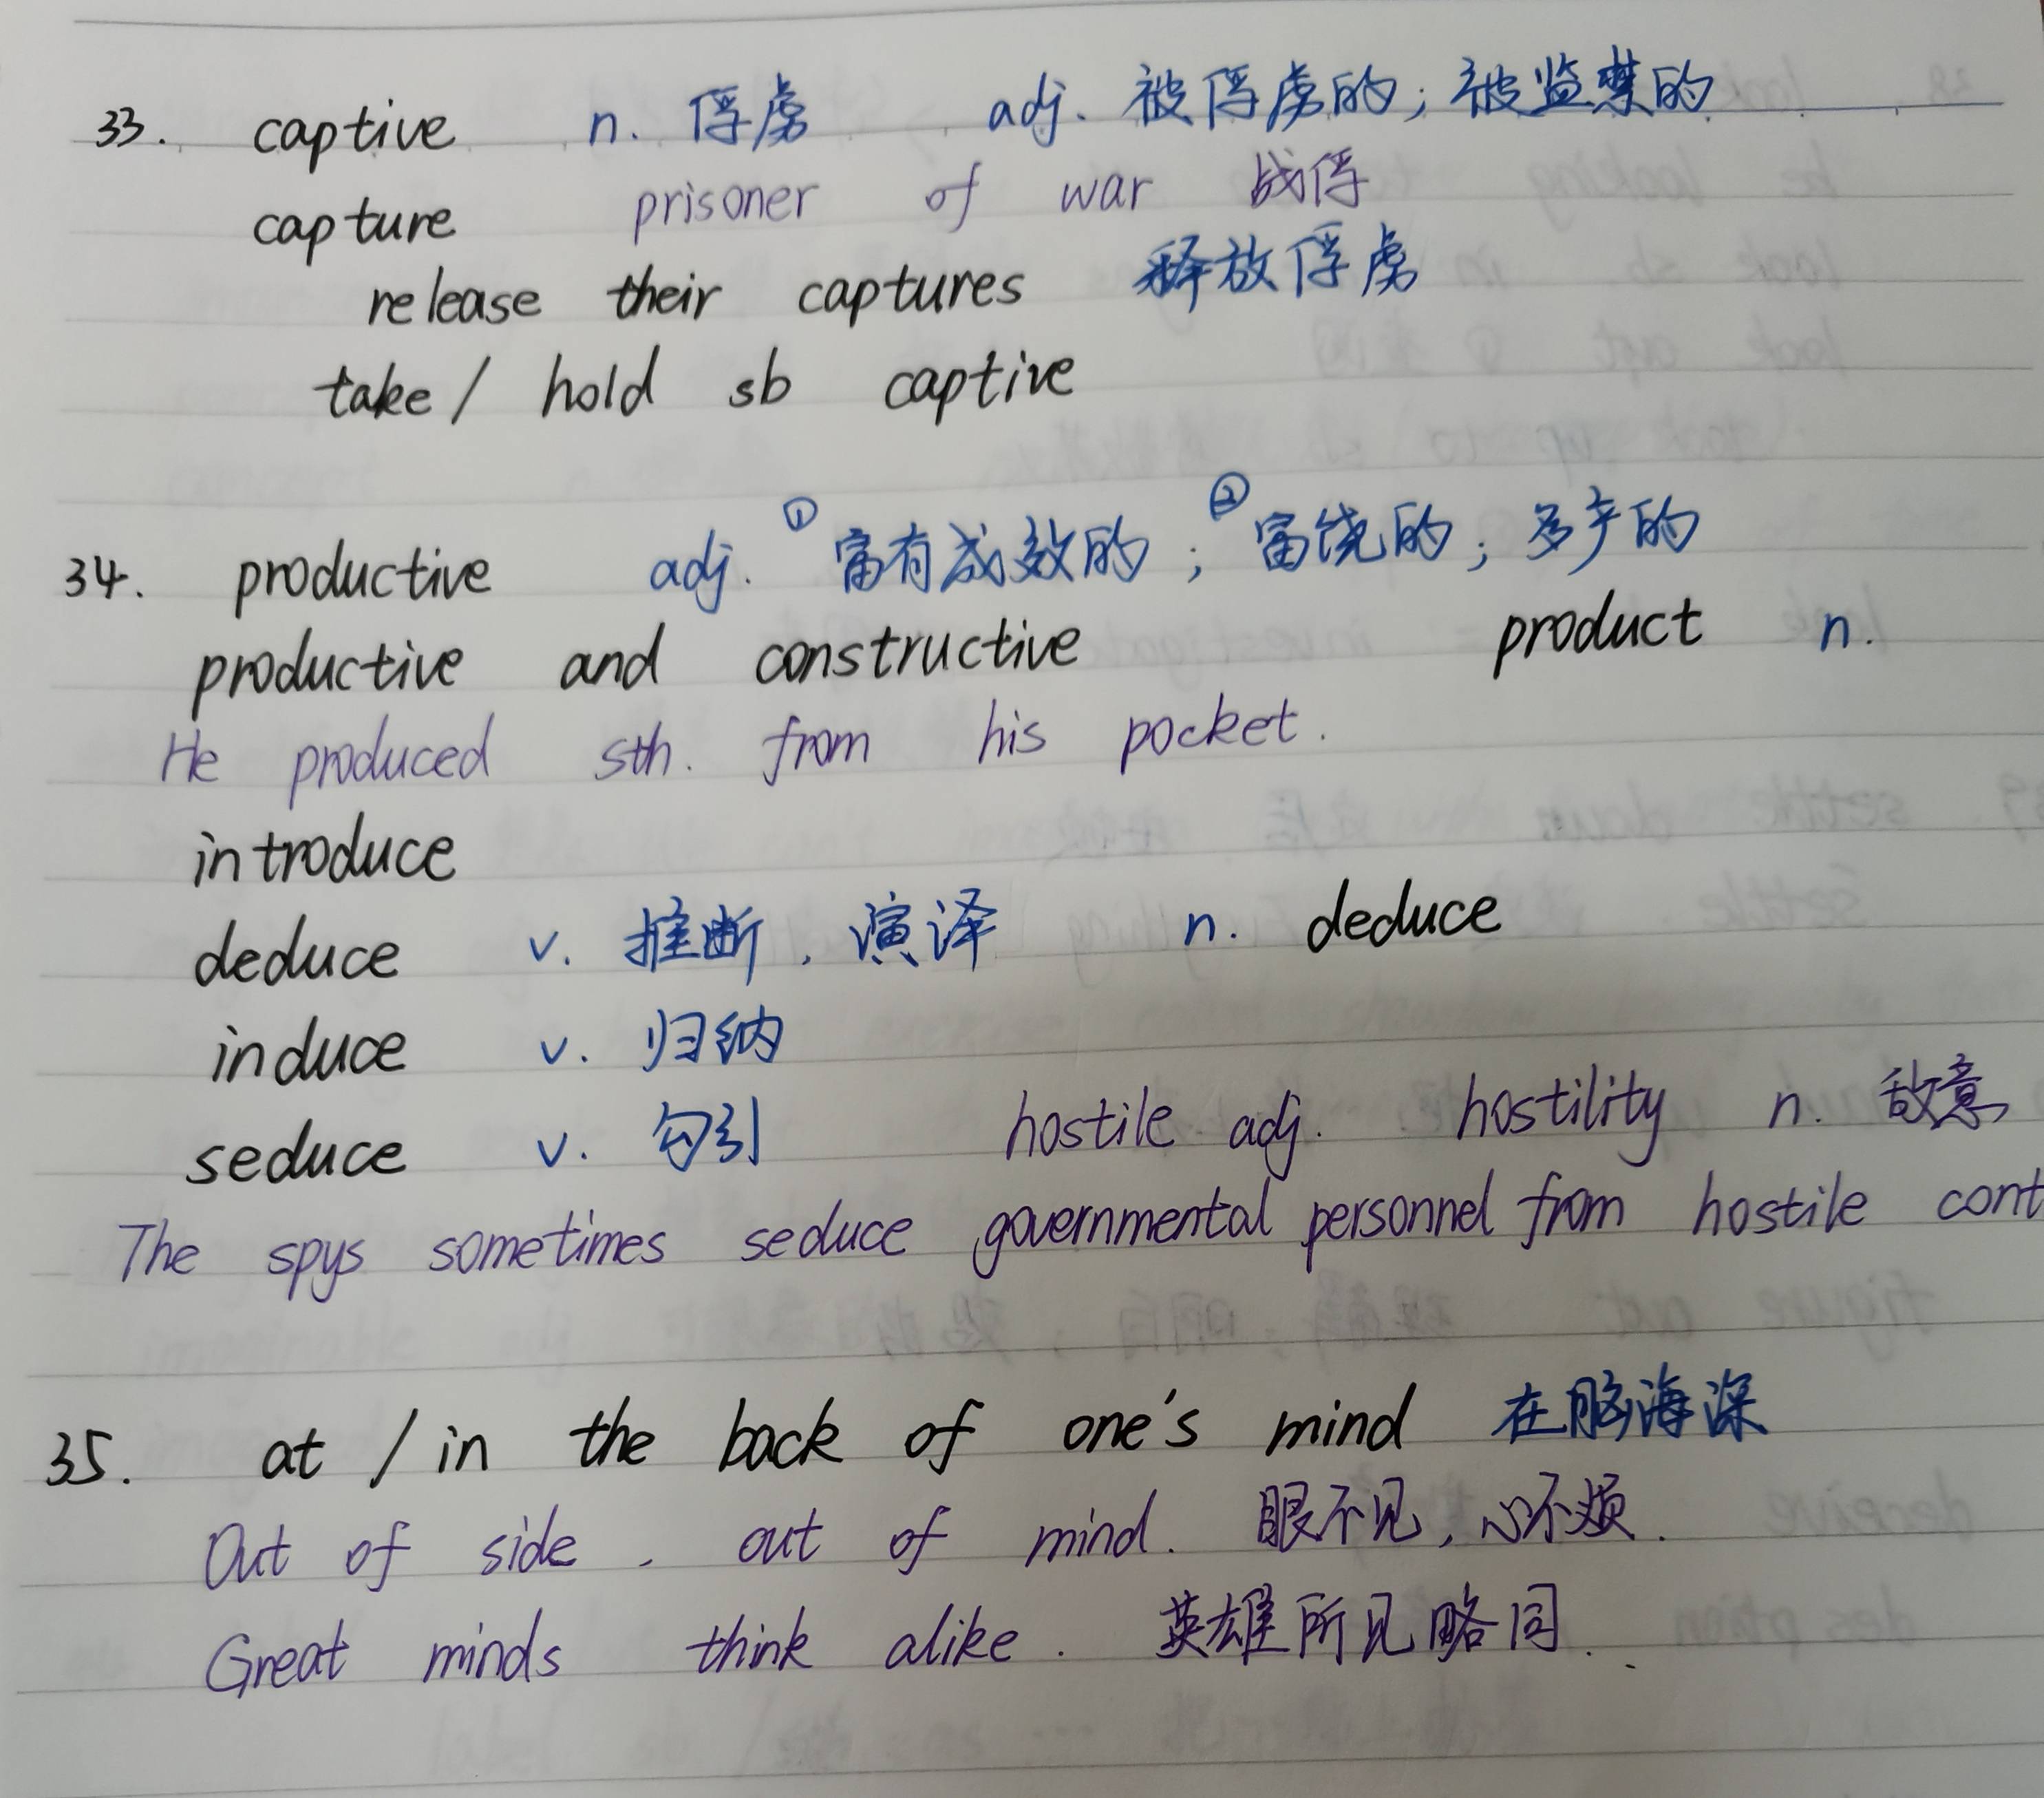 33. captive n. 俘虏 adj. 被俘虏的; 被监禁的
capture prisoner of war 战俘
release their captures 释放俘虏
take / hold sb captive
34. productive adj. ①富有成效的; ②富饶的; 多产的
productive and constructive product n.
He produced sth. from his pocket.
introduce
deduce v. 推断, 演译 n. deduce
induce v. 归纳
seduce v. 勾引 hostile adj. hostility n. 敌意
The spys sometimes seduce governmental personnel from hostile cont
35. at / in the back of one's mind 在脑海深
Out of side, out of mind. 眼不见, 心不烦.
Great minds think alike. 英雄所见略同.